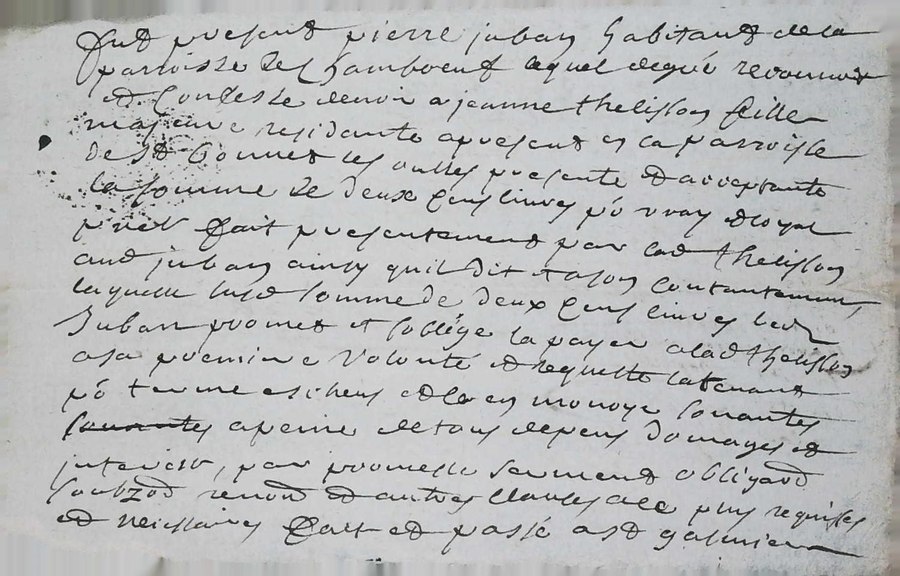 fut present pierre juban habitant de la
parroisse de Chamboeuf lequel de gré reconnoit
et confesse devoir a jeanne thelisson fille
majeure residante apresent en la parroisse
de st bonnet les oulles presente et acceptante
la somme de deux cens livres po vray et loyal
pret fait presentement par lad thelisson
aud juban ainsy quil dit et a son contantement
laquelle susd somme de deux cens livres led
Juban promet et soblige la payer a lad thelisson
a sa premiere volonté et requette la tenant
po terme escheu et la en monoye sonantes
sonantes a peine de tous depens domages et
interest, par promesse serment obligaon
soubzon renon et autres clauses a ce plus requises
et neissaires fait et passé a st galmier